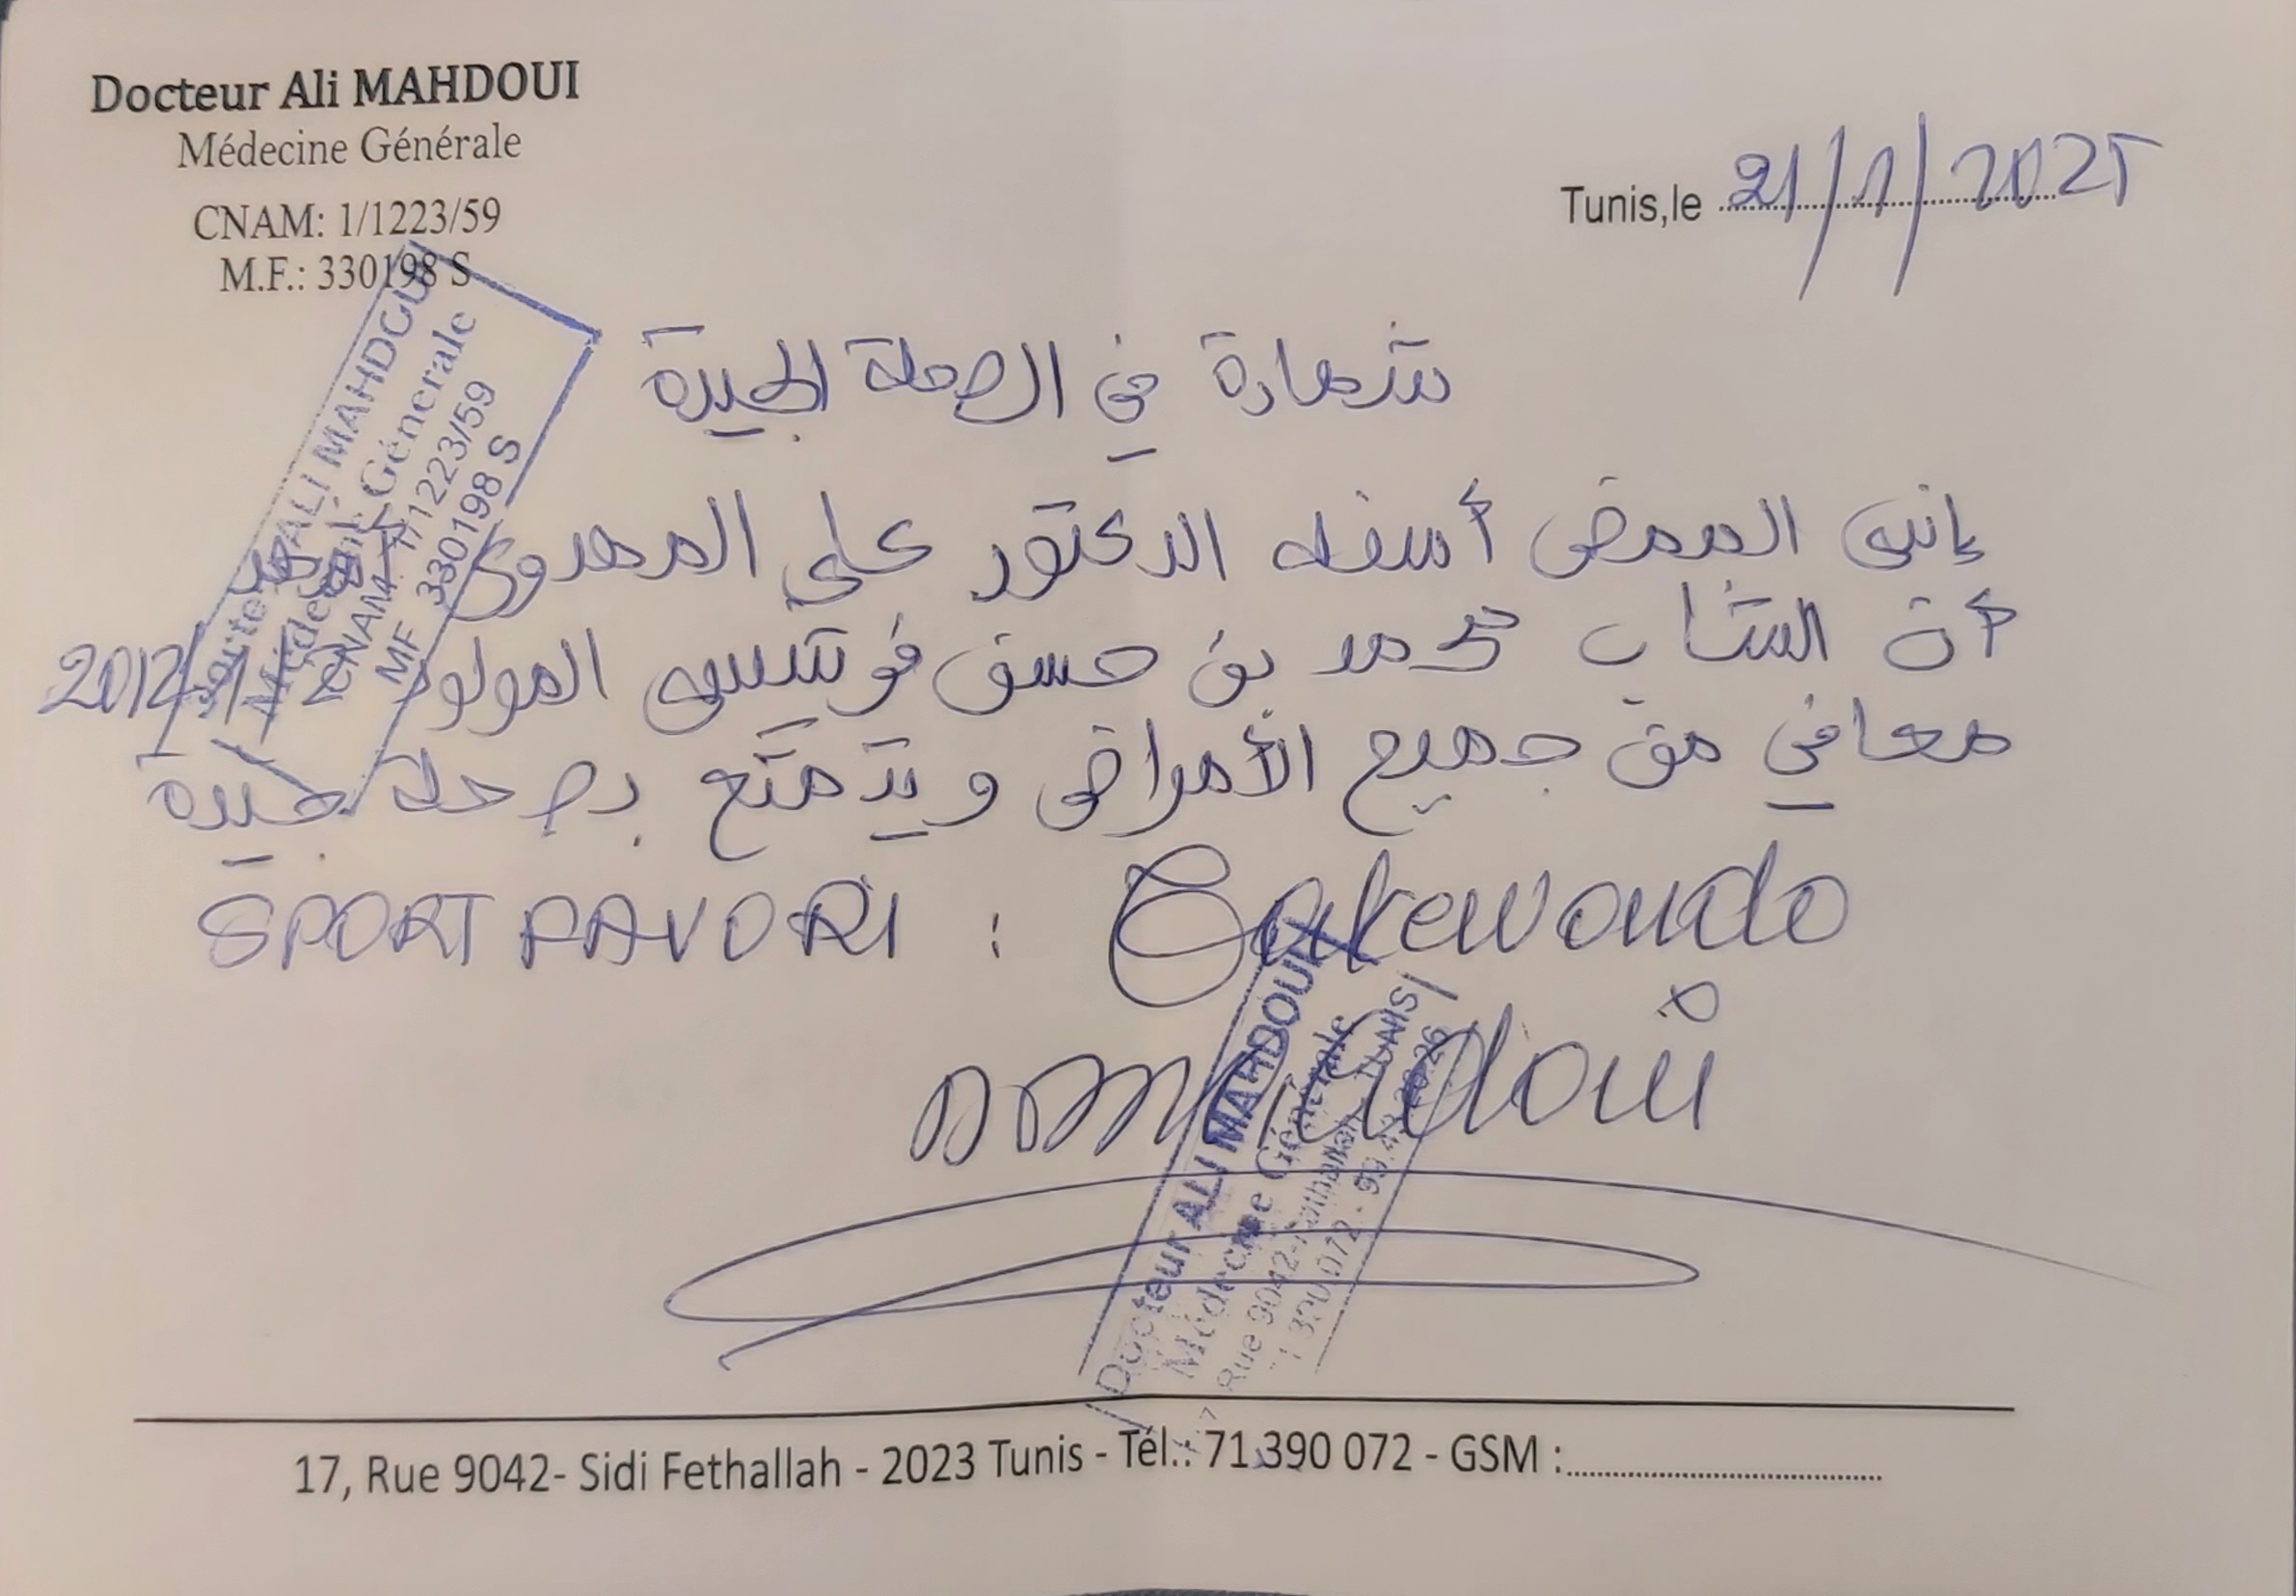 Docteur Ali MAHDOUI
Médecine Générale
CNAM: 1/1223/59
M.F.: 330198 S
Tunis,le 21/1/2025
شهادة في الصحة الجيدة
إنني الممضي أسفله الدكتور علي المهدوي
أن الشاب محمد بن حسن فو المولود 2012
معافي من جميع الأمراض ويتمتع بصحة جيدة
SPORT FAVORI : Taekwondo
Docteur ALI MAHDOUI
Médecine Générale
CNAM 1/1223/59
MF 330198 S
Docteur ALI MAHDOUI
Médecine Générale
Rue 9042- Fathallah TUNIS
17, Rue 9042- Sidi Fethallah - 2023 Tunis - Tél.: 71 390 072 - GSM :